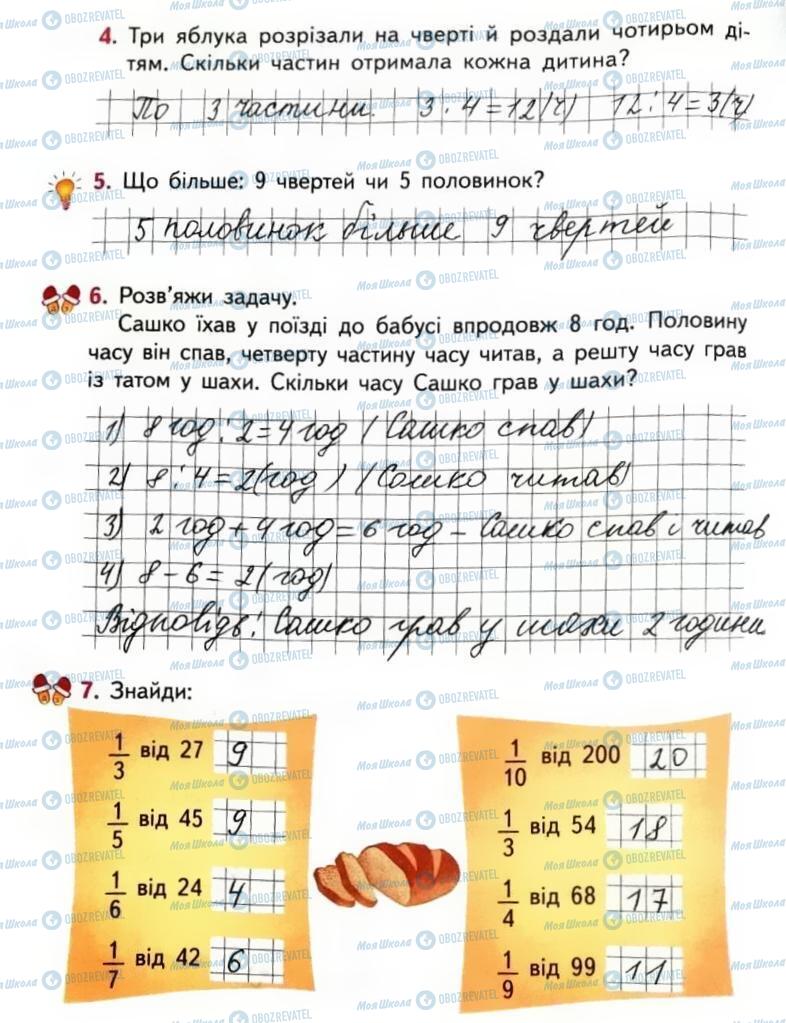 4. Три яблука розрізали на чверті й роздали чотирьом ді-
тям. Скільки частин отримала кожна дитина?
По 3 частини. 3 · 4 = 12 (ч) 12 : 4 = 3 (ч)
5. Що більше: 9 чвертей чи 5 половинок?
5 половинок більше 9 чвертей
6. Розв'яжи задачу.
Сашко їхав у поїзді до бабусі впродовж 8 год. Половину
часу він спав, четверту частину часу читав, а решту часу грав
із татом у шахи. Скільки часу Сашко грав у шахи?
1) 8 год : 2 = 4 год (Сашко спав)
2) 8 : 4 = 2 (год) (Сашко читав)
3) 2 год + 4 год = 6 год – Сашко спав і читав
4) 8 – 6 = 2 (год)
Відповідь: Сашко грав у шахи 2 години.
7. Знайди:
1/3 від 27 9
1/5 від 45 9
1/6 від 24 4
1/7 від 42 6
1/10 від 200 20
1/3 від 54 18
1/4 від 68 17
1/9 від 99 11
МояШкола OBOZREVATEL